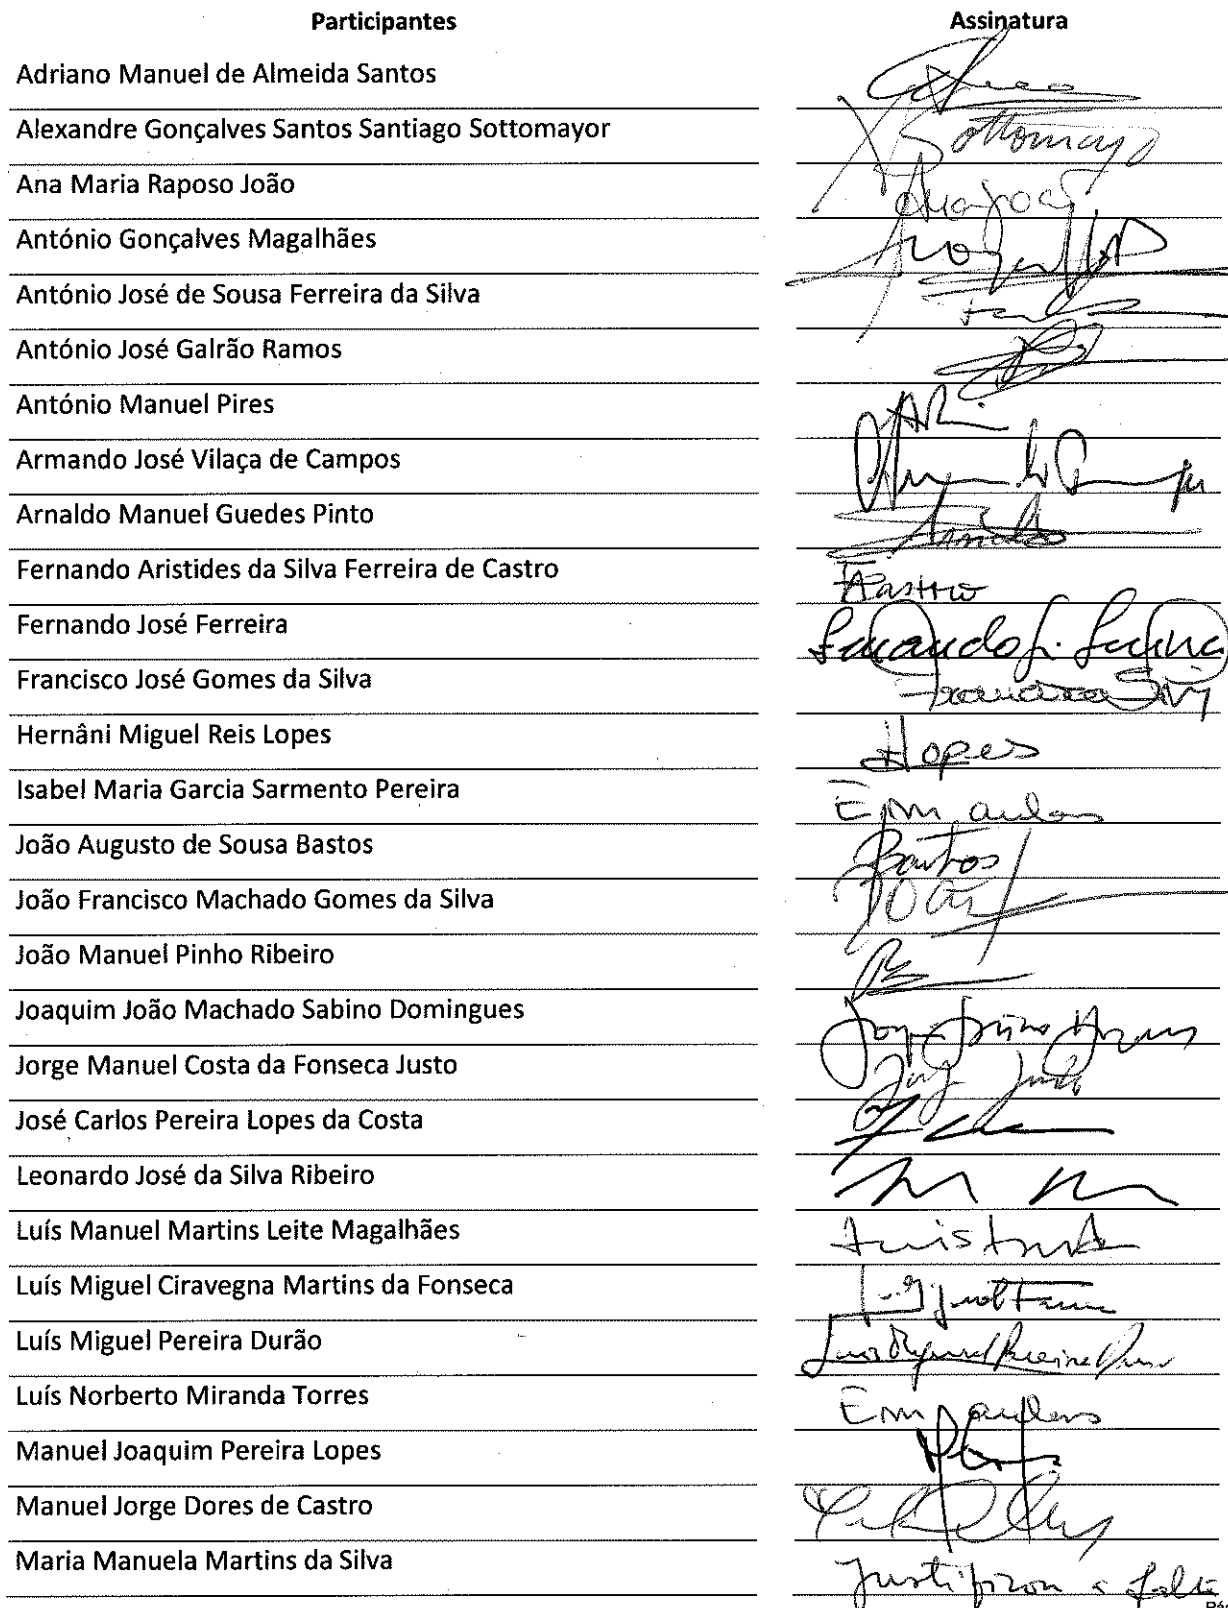 Participantes Assinatura
Adriano Manuel de Almeida Santos
Alexandre Gonçalves Santos Santiago Sottomayor Sottomayor
Ana Maria Raposo João
António Gonçalves Magalhães
António José de Sousa Ferreira da Silva
António José Galrão Ramos
António Manuel Pires
Armando José Vilaça de Campos
Arnaldo Manuel Guedes Pinto Arnaldo
Fernando Aristides da Silva Ferreira de Castro FCastro
Fernando José Ferreira Fernando J. Ferreira
Francisco José Gomes da Silva Francisco Silva
Hernâni Miguel Reis Lopes HLopes
Isabel Maria Garcia Sarmento Pereira Em aulas
João Augusto de Sousa Bastos Bastos
João Francisco Machado Gomes da Silva João
João Manuel Pinho Ribeiro
Joaquim João Machado Sabino Domingues
Jorge Manuel Costa da Fonseca Justo Jorge Justo
José Carlos Pereira Lopes da Costa
Leonardo José da Silva Ribeiro
Luís Manuel Martins Leite Magalhães
Luís Miguel Ciravegna Martins da Fonseca
Luís Miguel Pereira Durão Luís Miguel Pereira Durão
Luís Norberto Miranda Torres Em aulas
Manuel Joaquim Pereira Lopes
Manuel Jorge Dores de Castro
Maria Manuela Martins da Silva Justificou a falta